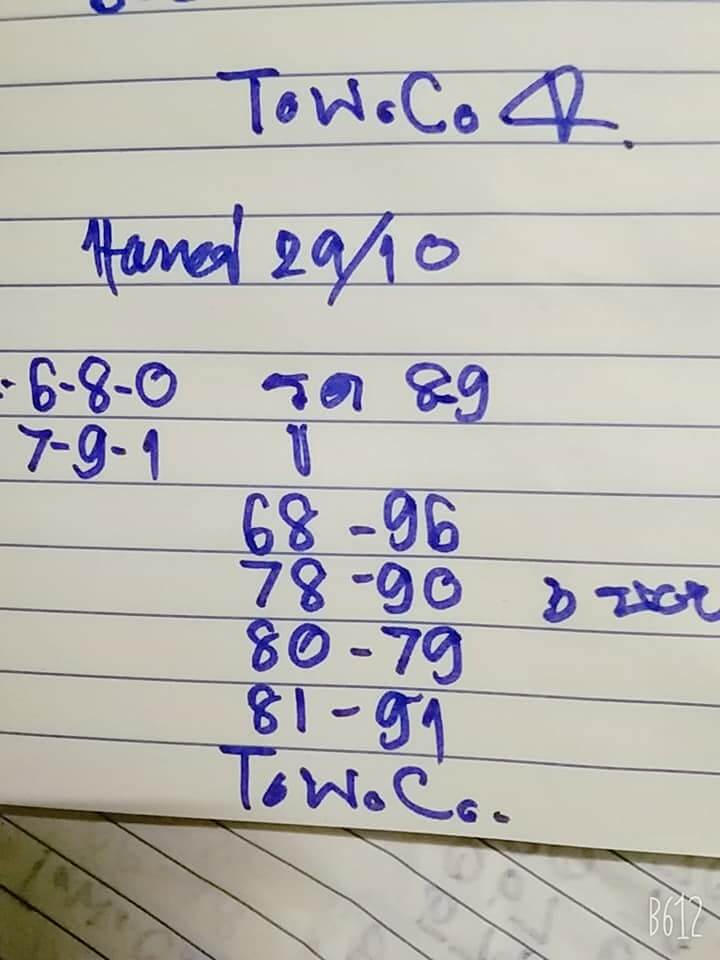 T.W.C.
Hanoi 29/10
6-8-0 รูด 89
7-9-1 ||
68-96
78-90
80-79
81-91
T.W.C.
B612